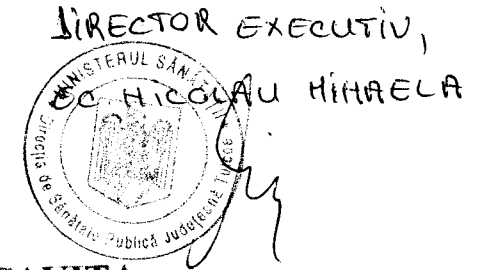 DIRECTOR EXECUTIV,
EC NICOLAU MIHAELA
MINISTERUL SĂNĂTĂȚII
Direcția de Sănătate Publică Județeană Tulcea